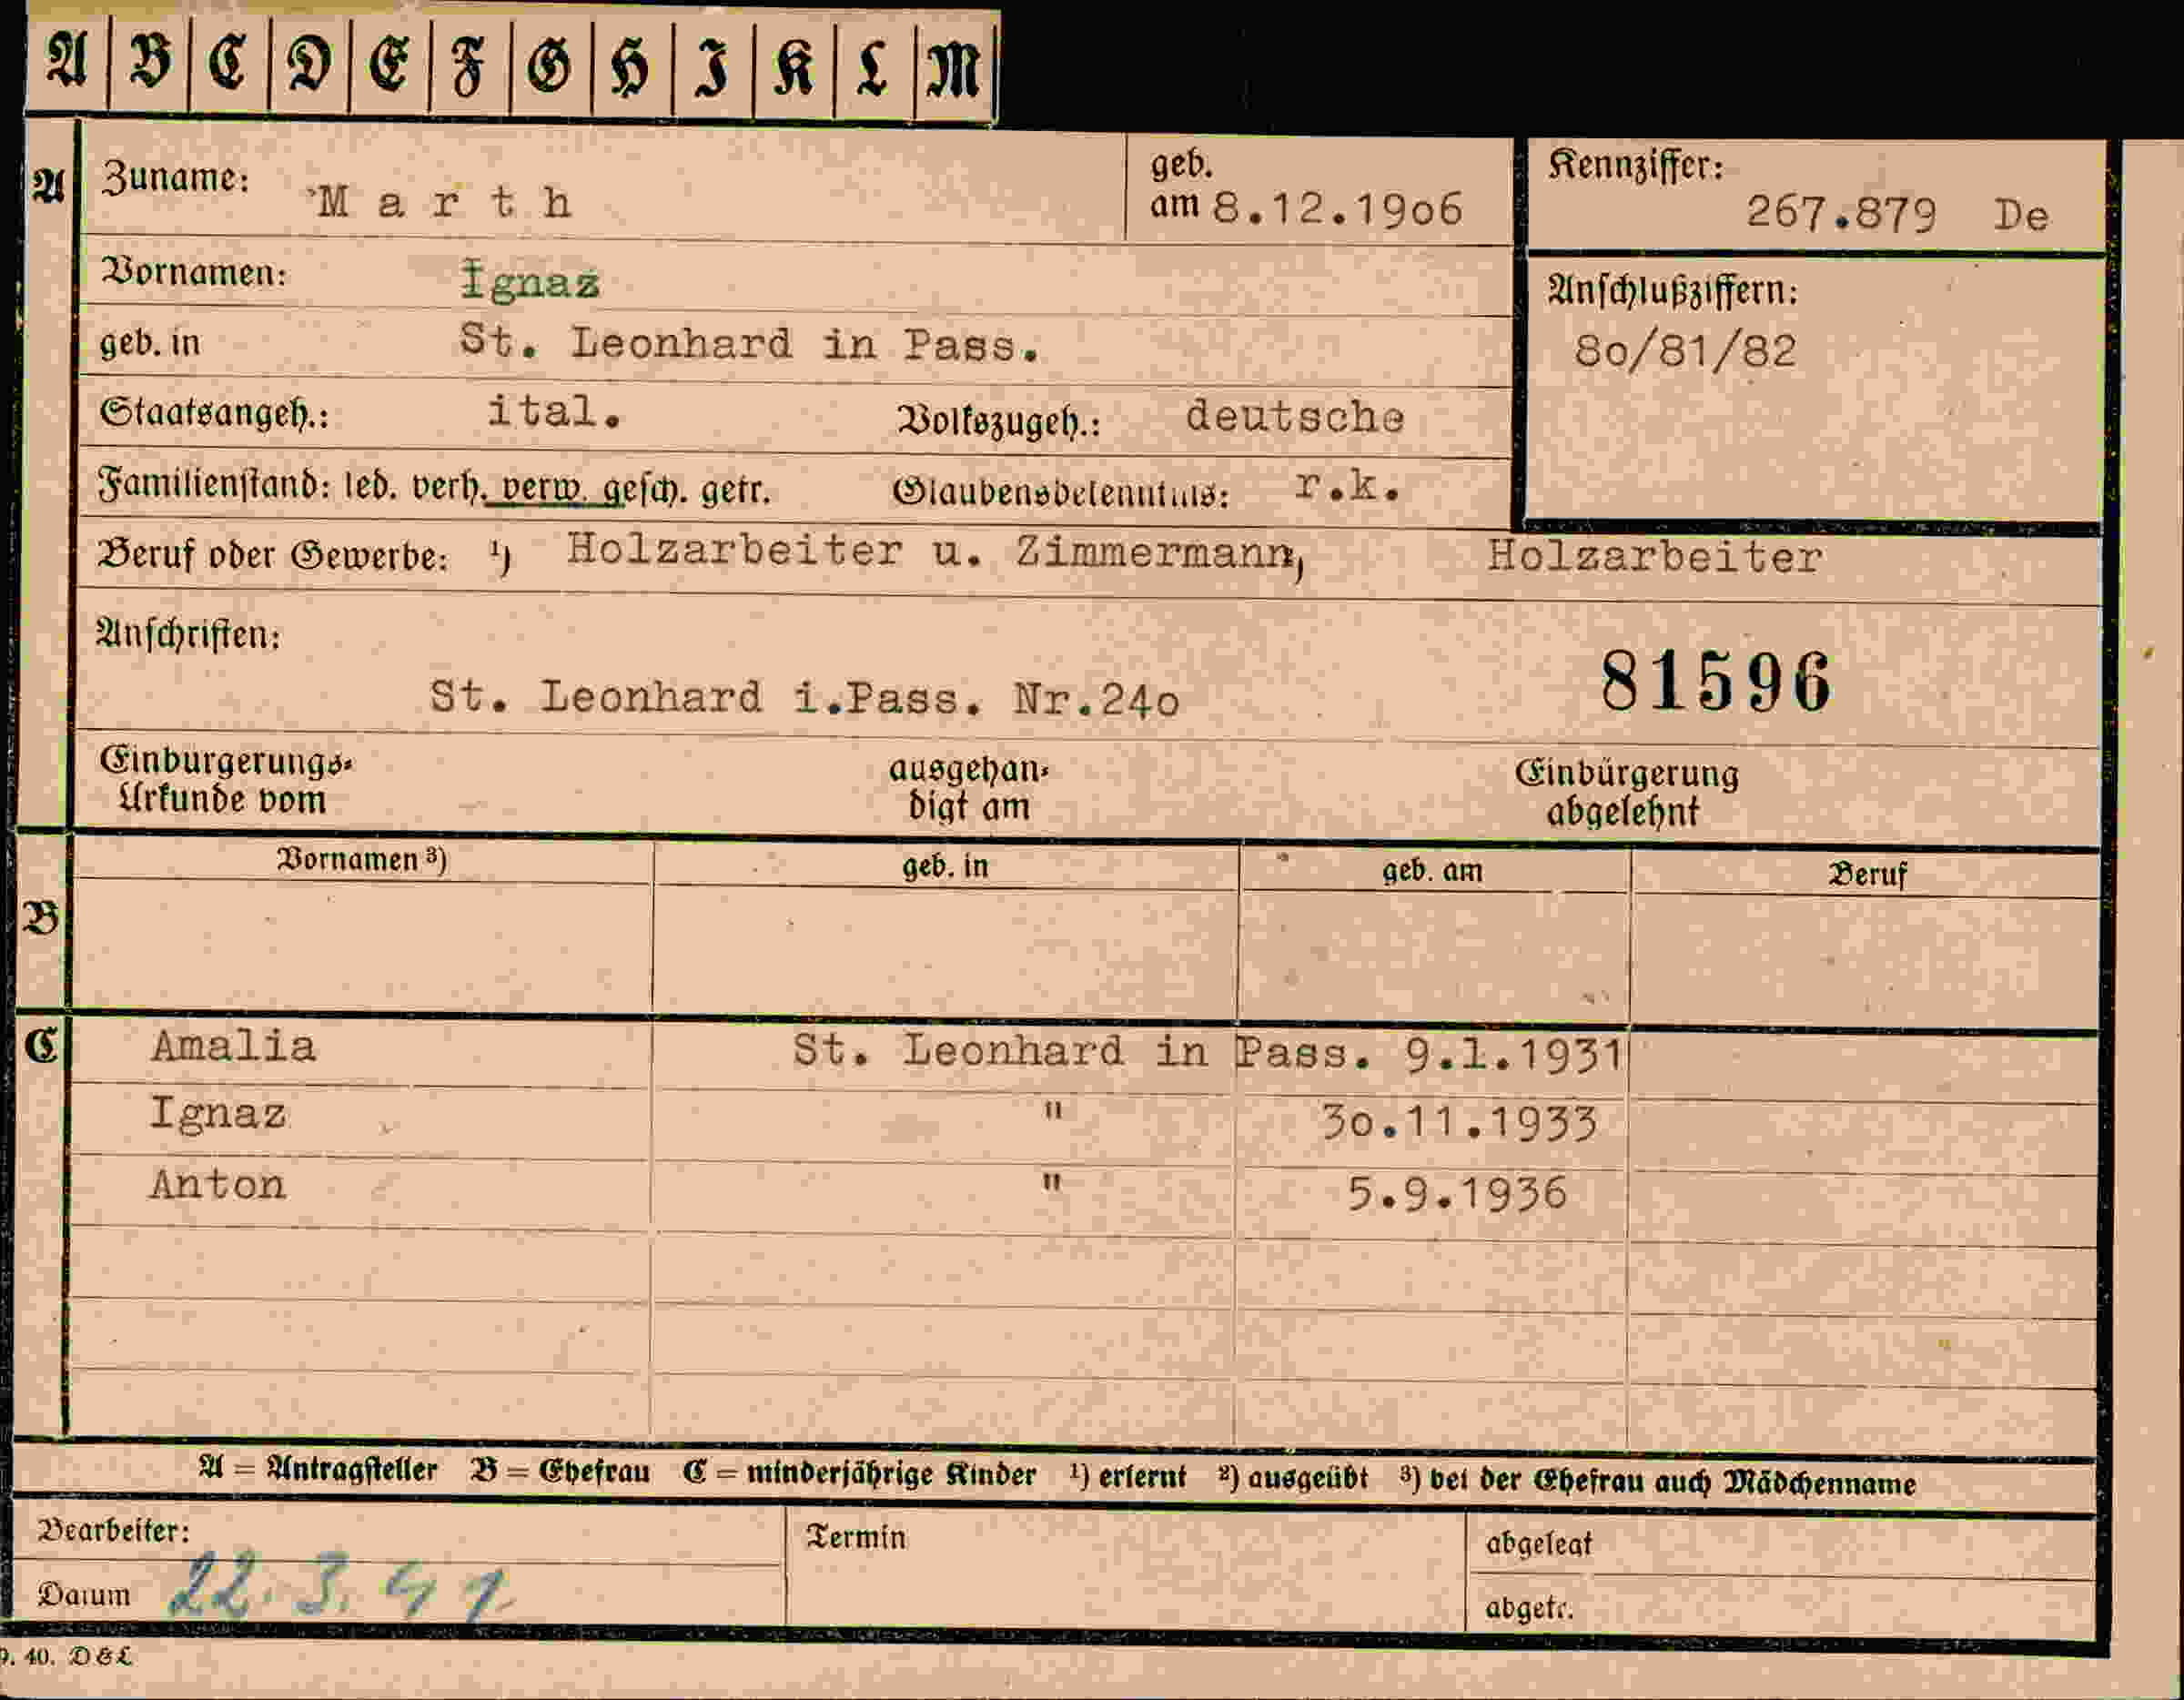 A B C D E F G H I K L M
A Zuname: Marth geb. am 8.12.19o6 Kennziffer: 267.879 De
Vornamen: Ignaz Anschlußziffern:
geb. in St. Leonhard in Pass. 8o/81/82
Staatsangeh.: ital. Volkszugeh.: deutsche
Familienstand: led. verh. verw. gesch. getr. Glaubensbekenntnis: r.k.
Beruf oder Gewerbe: ¹) Holzarbeiter u. Zimmermann, Holzarbeiter
Anschriften:
St. Leonhard i.Pass. Nr.24o 81596
Einbürgerungs- ausgehän- Einbürgerung
Urkunde vom digt am abgelehnt
Vornamen ³) geb. in geb. am Beruf
B
C Amalia St. Leonhard in Pass. 9.1.1931
Ignaz " 3o.11.1933
Anton " 5.9.1936
A = Antragsteller B = Ehefrau C = minderjährige Kinder ¹) erlernt ²) ausgeübt ³) bei der Ehefrau auch Mädchenname
Bearbeiter: Termin abgelegt
Datum 22.3.41 abgetr.
9. 40. D&L